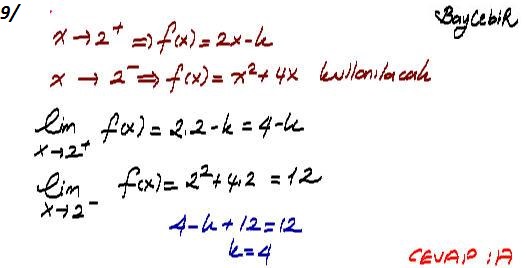 9/
BayCebiR
x→2⁺ ⇒ f(x) = 2x-k
x → 2⁻ ⇒ f(x) = x²+4x kullanılacak
lim f(x) = 2.2-k = 4-k
x→2⁺
lim f(x) = 2²+4.2 = 12
x→2⁻
4-k+12=12
k=4
CEVAP : A